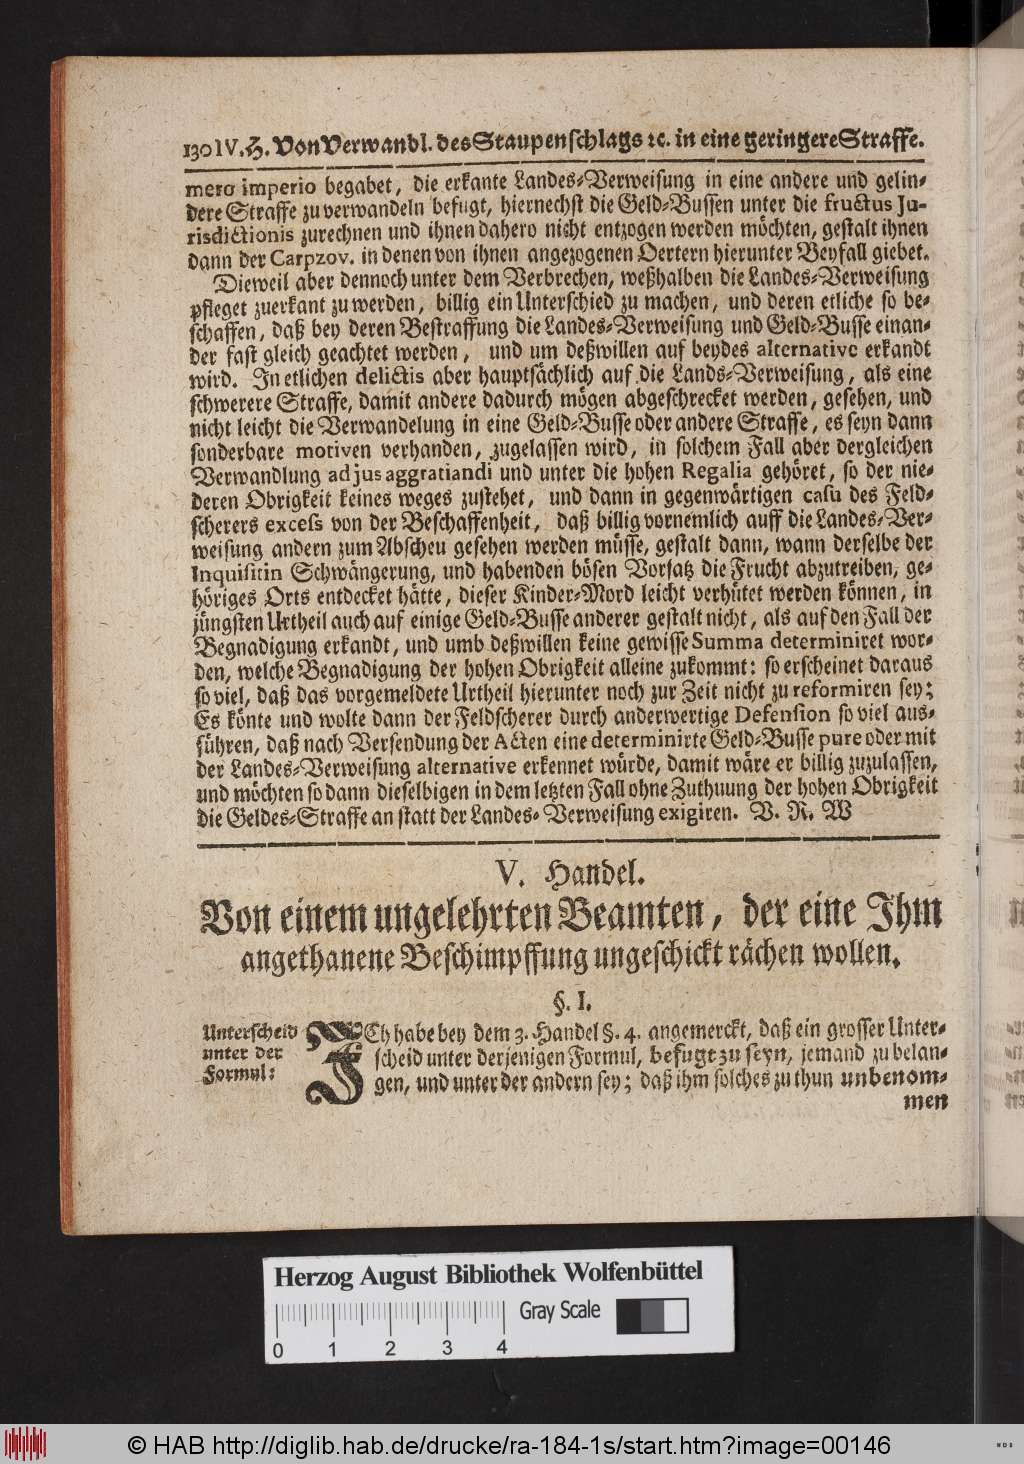 130 IV. H. Von Verwandl. des Staupenschlags ꝛc. in eine geringere Straffe.
mero imperio begabet, die erkante Landes-Verweisung in eine andere und gelin-
dere Straffe zu verwandeln befugt, hiernechst die Geld-Bussen unter die fructus Ju-
risdictionis zurechnen und ihnen dahero nicht entzogen werden möchten, gestalt ihnen
dann der Carpzov. in denen von ihnen angezogenen Oertern hierunter Beyfall giebet.
Dieweil aber dennoch unter dem Verbrechen, weßhalben die Landes-Verweisung
pfleget zuerkant zu werden, billig ein Unterschied zu machen, und deren etliche so be-
schaffen, daß bey deren Bestraffung die Landes-Verweisung und Geld-Busse einan-
der fast gleich geachtet werden, und um deßwillen auf beydes alternative erkandt
wird. In etlichen delictis aber hauptsächlich auf die Lands-Verweisung, als eine
schwerere Straffe, damit andere dadurch mögen abgeschrecket werden, gesehen, und
nicht leicht die Verwandelung in eine Geld-Busse oder andere Straffe, es seyn dann
sonderbare motiven verhanden, zugelassen wird, in solchem Fall aber dergleichen
Verwandlung ad jus aggratiandi und unter die hohen Regalia gehöret, so der nie-
deren Obrigkeit keines weges zustehet, und dann in gegenwärtigen casu des Feld-
scherers excess von der Beschaffenheit, daß billig vornemlich auff die Landes-Ver-
weisung andern zum Abscheu gesehen werden müsse, gestalt dann, wann derselbe der
Inquisitin Schwängerung, und habenden bösen Vorsatz die Frucht abzutreiben, ge-
höriges Orts entdecket hätte, dieser Kinder-Mord leicht verhütet werden können, in
jüngsten Urtheil auch auf einige Geld-Busse anderer gestalt nicht, als auf den Fall der
Begnadigung erkandt, und umb deßwillen keine gewisse Summa determiniret wor-
den, welche Begnadigung der hohen Obrigkeit alleine zukommt: so erscheinet daraus
so viel, daß das vorgemeldete Urtheil hierunter noch zur Zeit nicht zu reformiren sey;
Es könte und wolte dann der Feldscherer durch anderwertige Defension so viel aus-
führen, daß nach Versendung der Acten eine determinirte Geld-Busse pure oder mit
der Landes-Verweisung alternative erkennet würde, damit wäre er billig zuzulassen,
und möchten so dann dieselbigen in dem letzten Fall ohne Zuthuung der hohen Obrigkeit
die Geldes-Straffe an statt der Landes-Verweisung exigiren. V. R. W
V. Handel.
Von einem ungelehrten Beamten, der eine Ihm
angethanene Beschimpffung ungeschickt rächen wollen.
§. I.
Unterscheid
unter der
Formul:
ICh habe bey dem 3. Handel §. 4. angemerckt, daß ein grosser Unter-
scheid unter derjenigen Formul, befugt zu seyn, jemand zu belan-
gen, und unter der andern sey; daß ihm solches zu thun unbenom-
men
Herzog August Bibliothek Wolfenbüttel
Gray Scale
0 1 2 3 4
© HAB http://diglib.hab.de/drucke/ra-184-1s/start.htm?image=00146